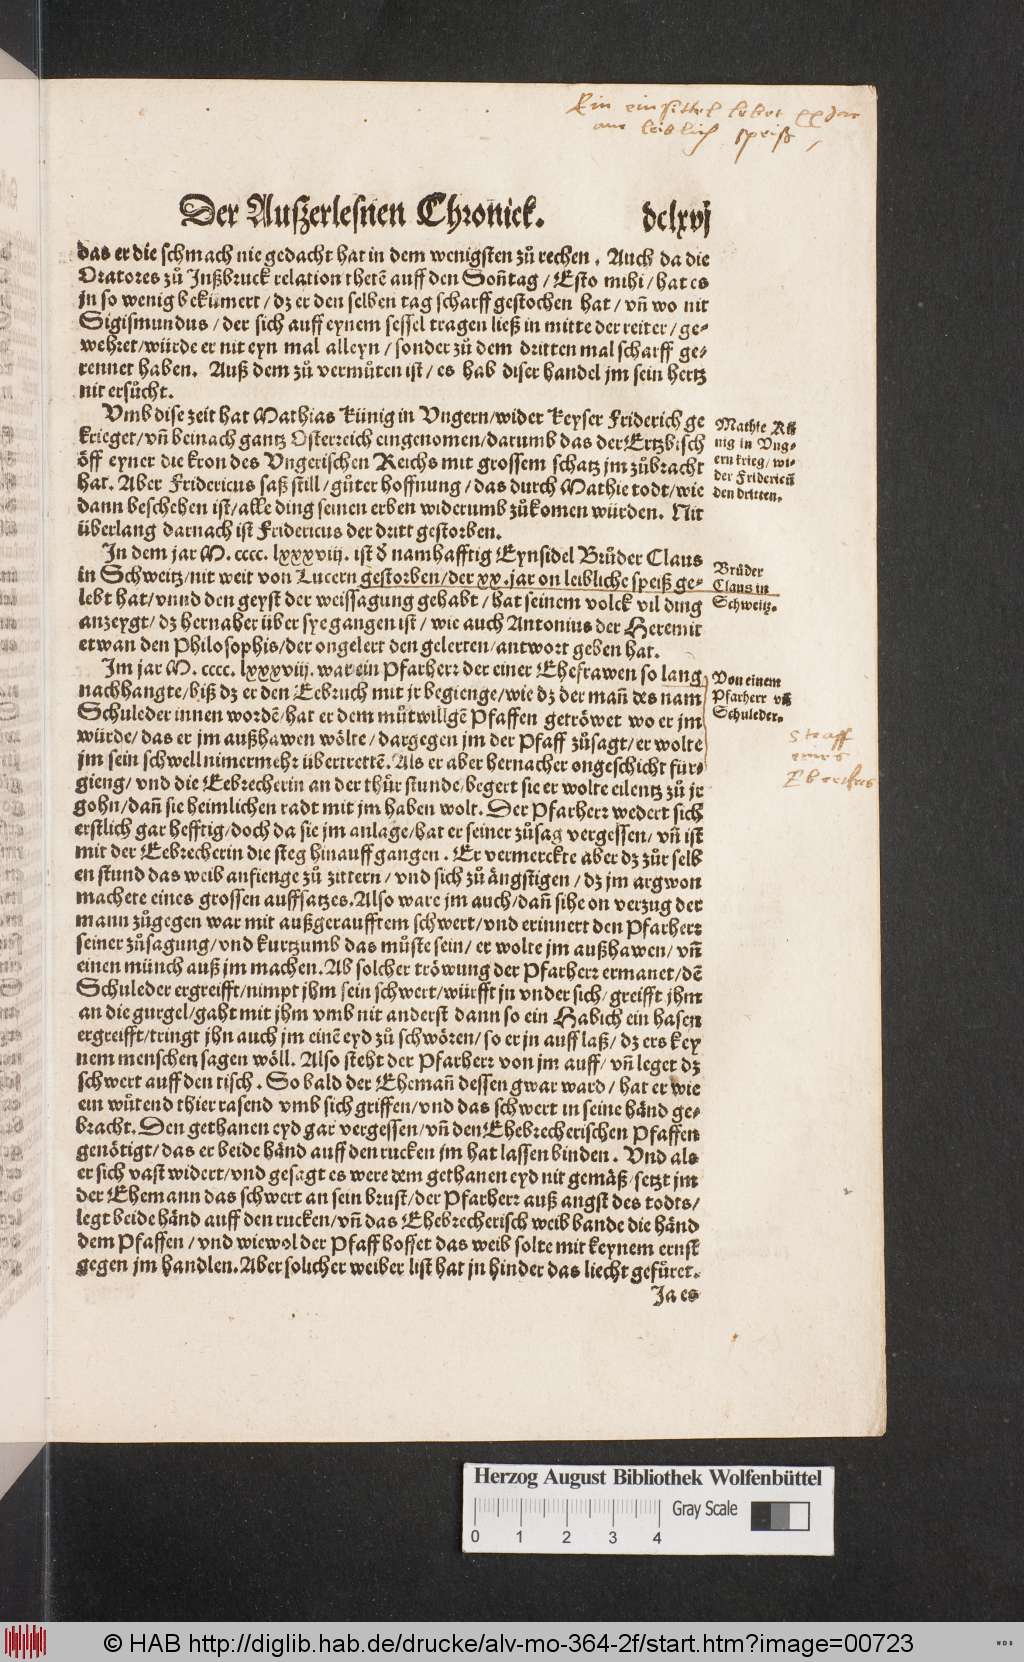 Ein einsittel lebet xx Jar
one leiblich speiß,
Der Außerlesnen Chronick. dclxvj
das er die schmach nie gedacht hat in dem wenigsten zů rechen. Auch da die
Oratores zů Jnßbruck relation thetẽ auff den Soñtag / Esto mihi / hat es
jn so wenig bekümert / dz er den selben tag scharff gestochen hat / vñ wo nit
Sigismundus / der sich auff eynem sessel tragen ließ in mitte der reiter / ge-
wehret/würde er nit eyn mal alleyn / sonder zů dem dritten mal scharff ge-
rennet haben. Auß dem zů vermůten ist / es hab diser handel jm sein hertz
nit ersůcht.
Vmb dise zeit hat Mathias Künig in Vngern/wider Keyser Friderich ge
krieget/vñ beinach gantz Osterreich eingenomen/darumb das der Ertzbisch
öff eyner die kron des Vngerischen Reichs mit grossem schatz jm zůbracht
hat. Aber Fridericus saß still / gůter hoffnung / das durch Mathie todt/wie
dann beschehen ist/alle ding seinen erben widerumb zůkomen würden. Nit
überlang darnach ist Fridericus der dritt gestorben.
Mathie Kü
nig in Vng-
ern krieg/wi-
der Fridericũ
den dritten.
In dem jar M. cccc. lxxxvij. ist d' namhafftig Eynsidel Brůder Claus
in Schweitz/nit weit von Lucern gestorben/der xx. jar on leibliche speiß ge-
lebt hat/vnnd den geyst der weissagung gehabt / hat seinem volck vil ding
anzeygt/ dz hernaher über sye gangen ist / wie auch Antonius der Heremit
etwan den Philosophis/der ongelert den gelerten/antwort geben hat.
Brůder
Claus in
Schweitz.
Im jar M. cccc. lxxxviij. war ein Pfarherr der einer Ehefrawen so lang
nachhangte/biß dz er den Eebruch mit jr begienge/wie dz der mañ des nam
Schuleder innen wordẽ/hat er dem můtwilligẽ Pfaffen getröwet wo er jm
würde/ das er jm außhawen wölte / dargegen jm der Pfaff zůsagt/er wolte
jm sein schwell nimermehr übertrettẽ. Als er aber hernacher ongeschicht für-
gieng/ vnd die Eebrecherin an der thür stunde/begert sie er wolte eilentz zů jr
gohn/dañ sie heimlichen radt mit jm haben wolt. Der Pfarherr wedert sich
erstlich gar hefftig/doch da sie jm anlage/hat er seiner zůsag vergessen/ vñ ist
mit der Eebrecherin die steg hinauff gangen. Er vermerckte aber dz zůr selb
en stund das weib anfienge zů zittern / vnd sich zů ängstigen / dz jm argwon
machete eines grossen auffsatzes. Also ware jm auch/dañ sihe on verzug der
mann zůgegen war mit außgeraufftem schwert/vnd erinnert den Pfarherr
seiner zůsagung/vnd kurtzumb das můste sein/ er wolte jm außhawen/ vñ
einen münch auß jm machen. Ab solcher tröwung der Pfarherr ermanet/dẽ
Schuleder ergreifft/nimpt jhm sein schwert/würfft jn vnder sich/ greifft jhm
an die gurgel/gaht mit jhm vmb nit anderst dann so ein Habich ein hasen
ergreifft/tringt jhn auch jm einẽ eyd zů schwören/ so er jn auff laß/ dz ers key
nem menschen sagen wöll. Also steht der Pfarherr von jm auff/ vñ leget dz
schwert auff den tisch. So bald der Ehemañ dessen gwar ward / hat er wie
ein wůtend thier rasend vmb sich griffen/vnd das schwert in seine händ ge-
bracht. Den gethanen eyd gar vergessen/ vñ den Ehebrecherischen Pfaffen
genötigt/das er beide händ auff den rucken jm hat lassen binden. Vnd als
er sich vast widert/vnd gesagt es were dem gethanen eyd nit gemäß/ setzt jm
der Ehemann das schwert an sein brust/der Pfarherr auß angst des todts/
legt beide händ auff den rucken/vñ das Ehebrecherisch weib bande die händ
dem Pfaffen / vnd wiewol der Pfaff hoffet das weib solte mit keynem ernst
gegen jm handlen. Aber solicher weiber list hat jn hinder das liecht gefüret.
Ja es
Von einem
Pfarherr vñ
Schuleder.
Straff
eines
Ebrechers
Herzog August Bibliothek Wolfenbüttel
Gray Scale
0 1 2 3 4
© HAB http://diglib.hab.de/drucke/alv-mo-364-2f/start.htm?image=00723